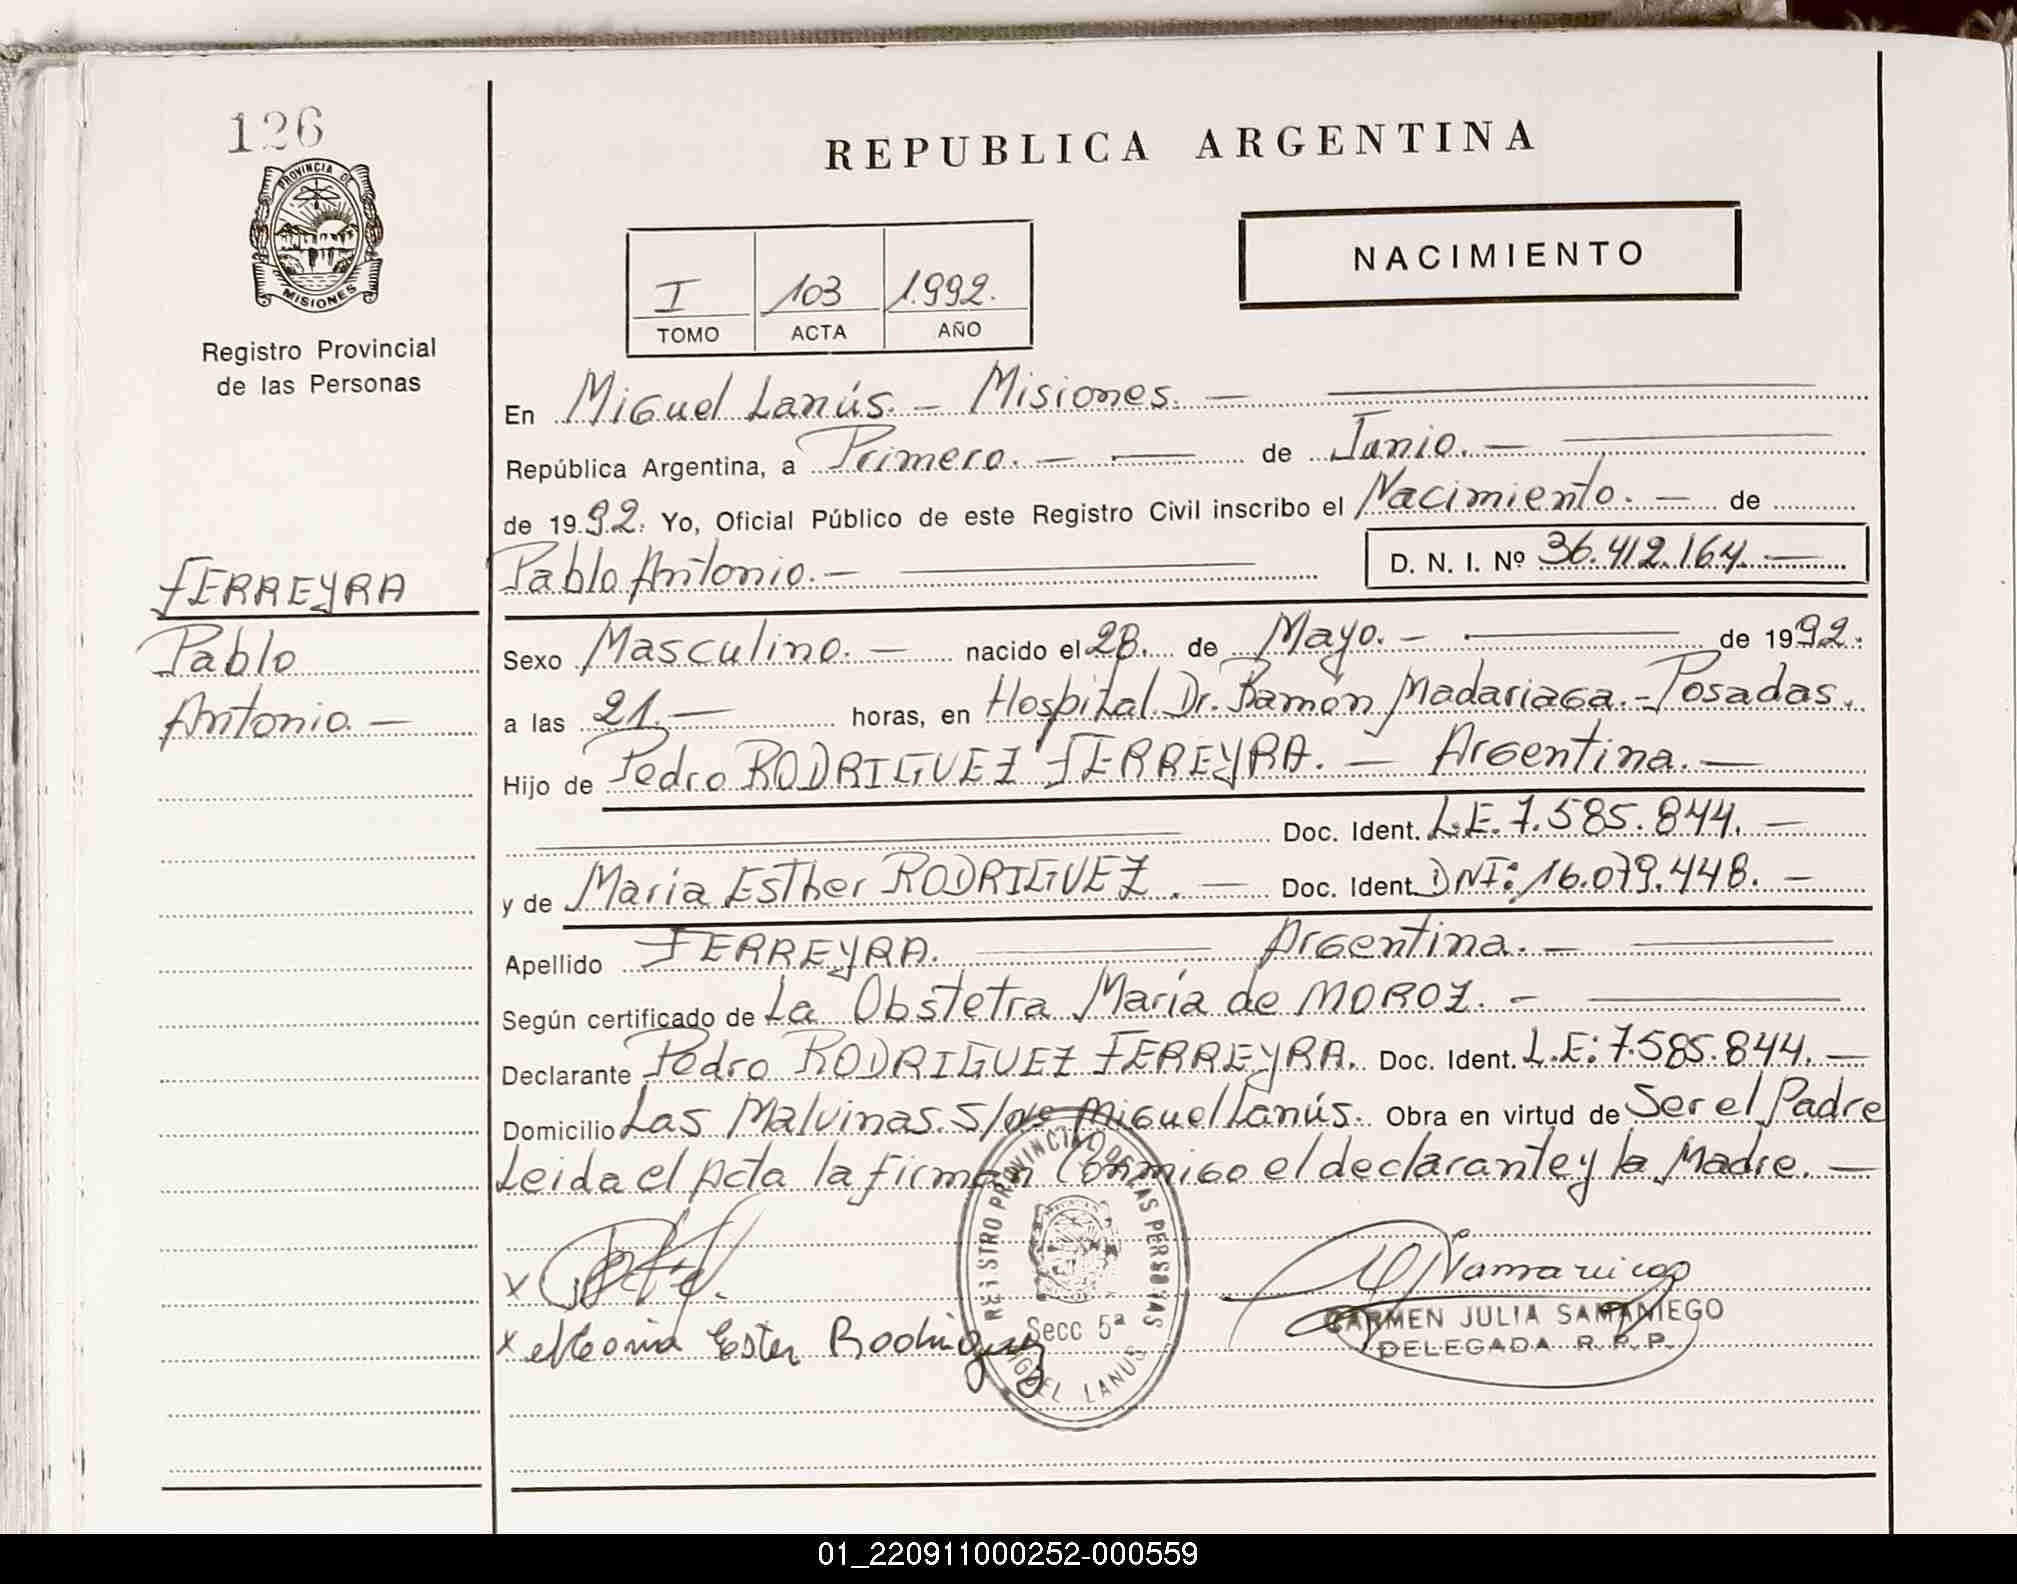 126
PROVINCIA DE
MISIONES
Registro Provincial
de las Personas
REPUBLICA ARGENTINA
NACIMIENTO
I 103 1.992.
TOMO ACTA AÑO
En Miguel Lanús. - Misiones. -
República Argentina, a Primero. - de Junio. -
de 1992. Yo, Oficial Público de este Registro Civil inscribo el Nacimiento. - de
FERREYRA Pablo Antonio. - D. N. I. Nº 36.412.164. -
Pablo Sexo Masculino. - nacido el 28. de Mayo. - de 1992.
Antonio. - a las 21. - horas, en Hospital Dr. Ramón Madariaga. - Posadas.
Hijo de Pedro RODRIGUEZ FERREYRA. - Argentina. -
Doc. Ident. L.E. 7.585.844. -
y de Maria Esther RODRIGUEZ. - Doc. Ident. DNI: 16.079.448. -
Apellido FERREYRA. Argentina. -
Según certificado de La Obstetra María de MOROZ. -
Declarante Pedro RODRIGUEZ FERREYRA. Doc. Ident. L.E: 7.585.844. -
Domicilio Las Malvinas. S/Nº Miguel Lanús. Obra en virtud de Ser el Padre
Leida el Acta la firman Conmigo el declarante y la Madre. -
REGISTRO PROVINCIAL DE LAS PERSONAS
Secc 5ª
MIGUEL LANUS
x
x Maria Ester Rodriguez
CARMEN JULIA SAMANIEGO
DELEGADA R. P. P.
01_220911000252-000559